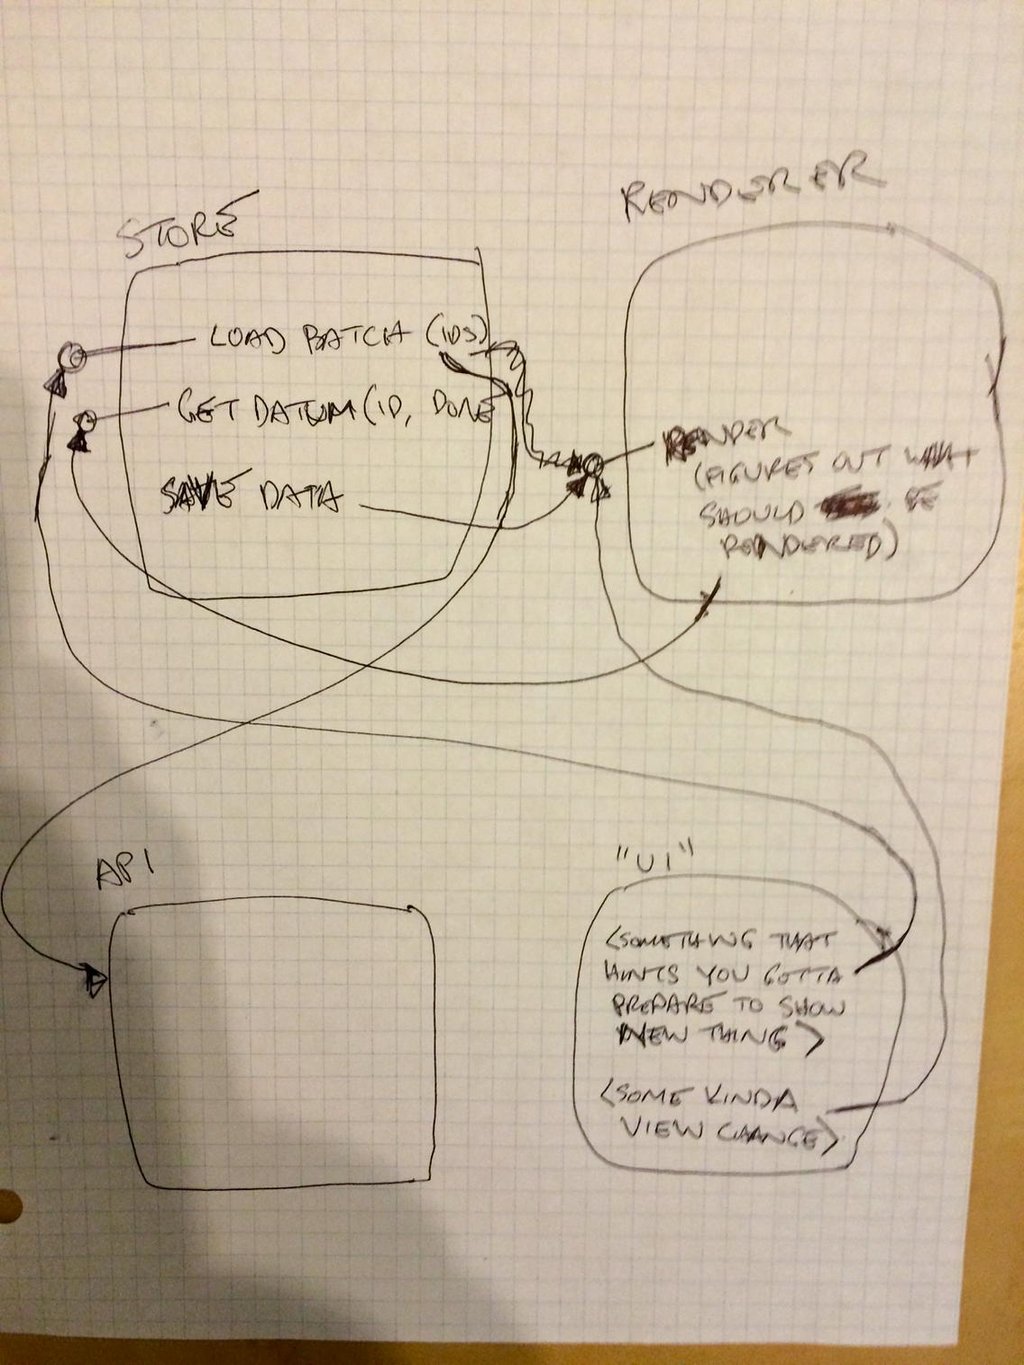 STORE
LOAD BATCH (IDS)
GET DATUM (ID, DONE
SAVE DATA
RENDERER
RENDER
(FIGURES OUT WHAT
SHOULD BE
RENDERED)
API
"UI"
<SOMETHING THAT
HINTS YOU GOTTA
PREPARE TO SHOW
NEW THING>
<SOME KINDA
VIEW CHANGE>